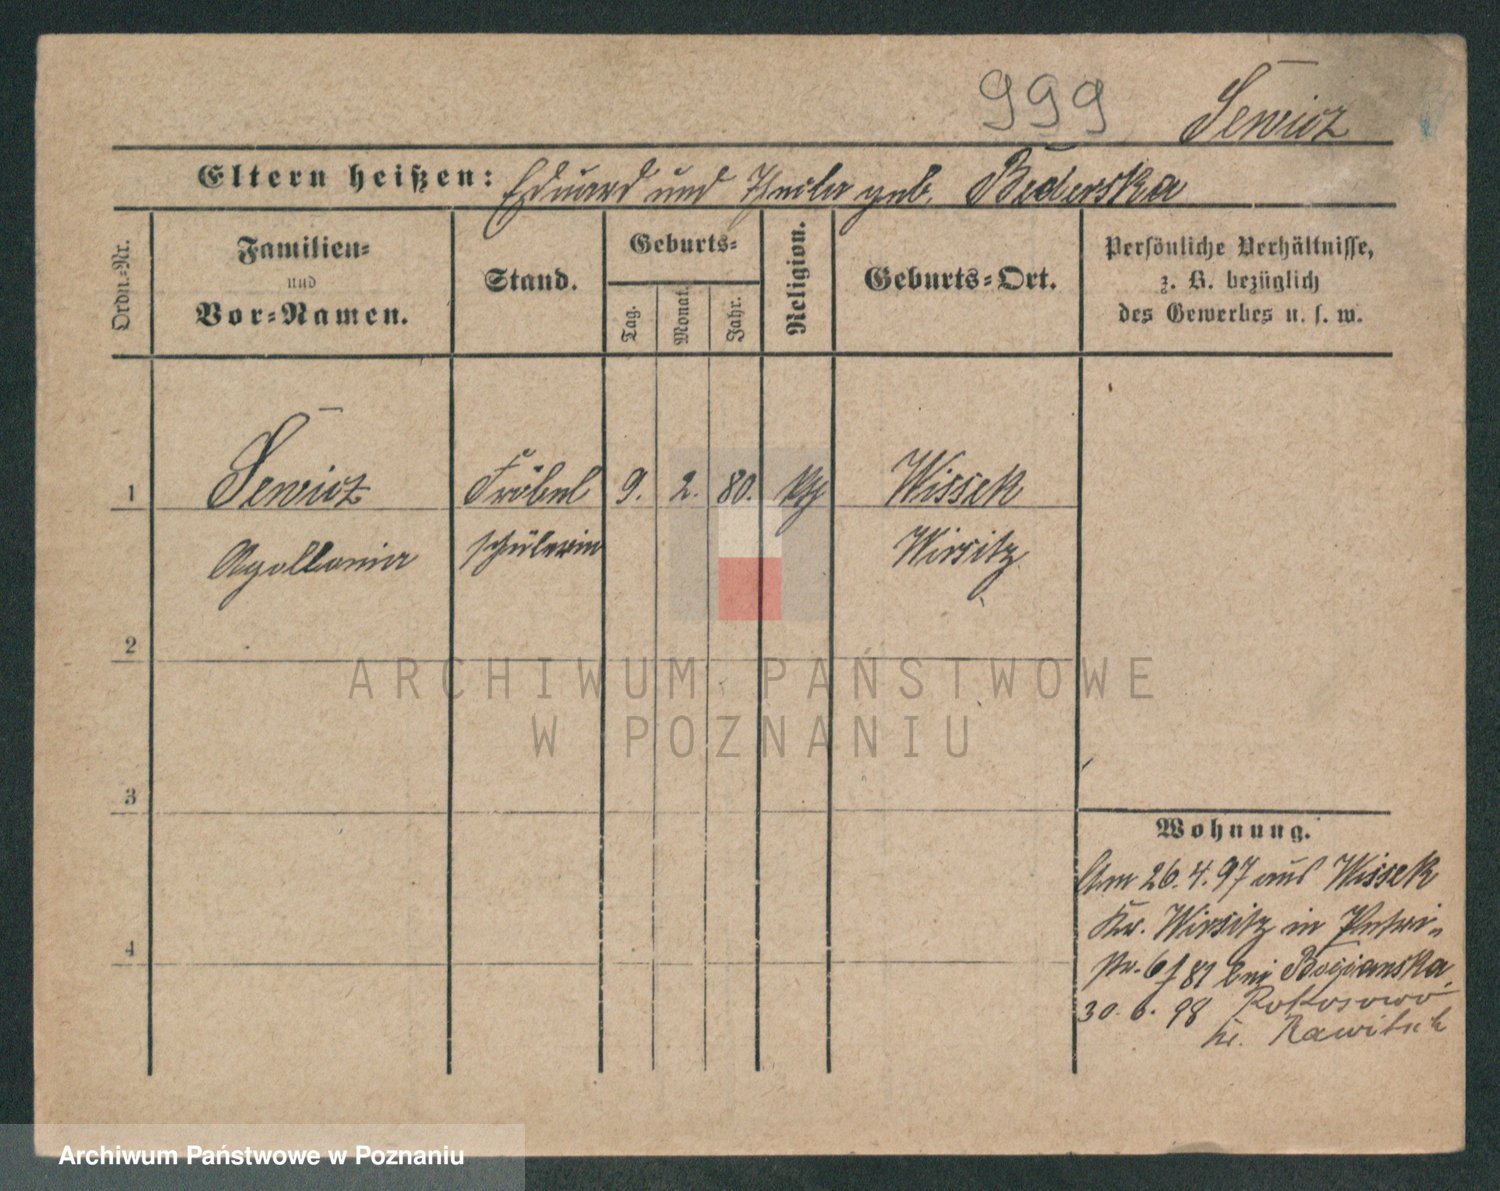 999 Sewicz
Eltern heißen: Eduard und Thecla geb. Bederska
Ordn.-Nr.
Familien-
und
Vor-Namen.
Stand.
Geburts-
Tag.
Monat.
Jahr.
Religion.
Geburts-Ort.
Persönliche Verhältnisse,
z. B. bezüglich
des Gewerbes u. s. w.
1 Sewicz Fröbel 9. 2. 80. Wissek
Apollonia schülerin Wirsitz
2
3
4
Wohnung.
Am 26.4.97 aus Wissek
Kr. Wirsitz in Petri-
str. 6 bei
30.6.98 Rokosowo
Kr. Rawitsch
ARCHIWUM PAŃSTWOWE
W POZNANIU
Archiwum Państwowe w Poznaniu